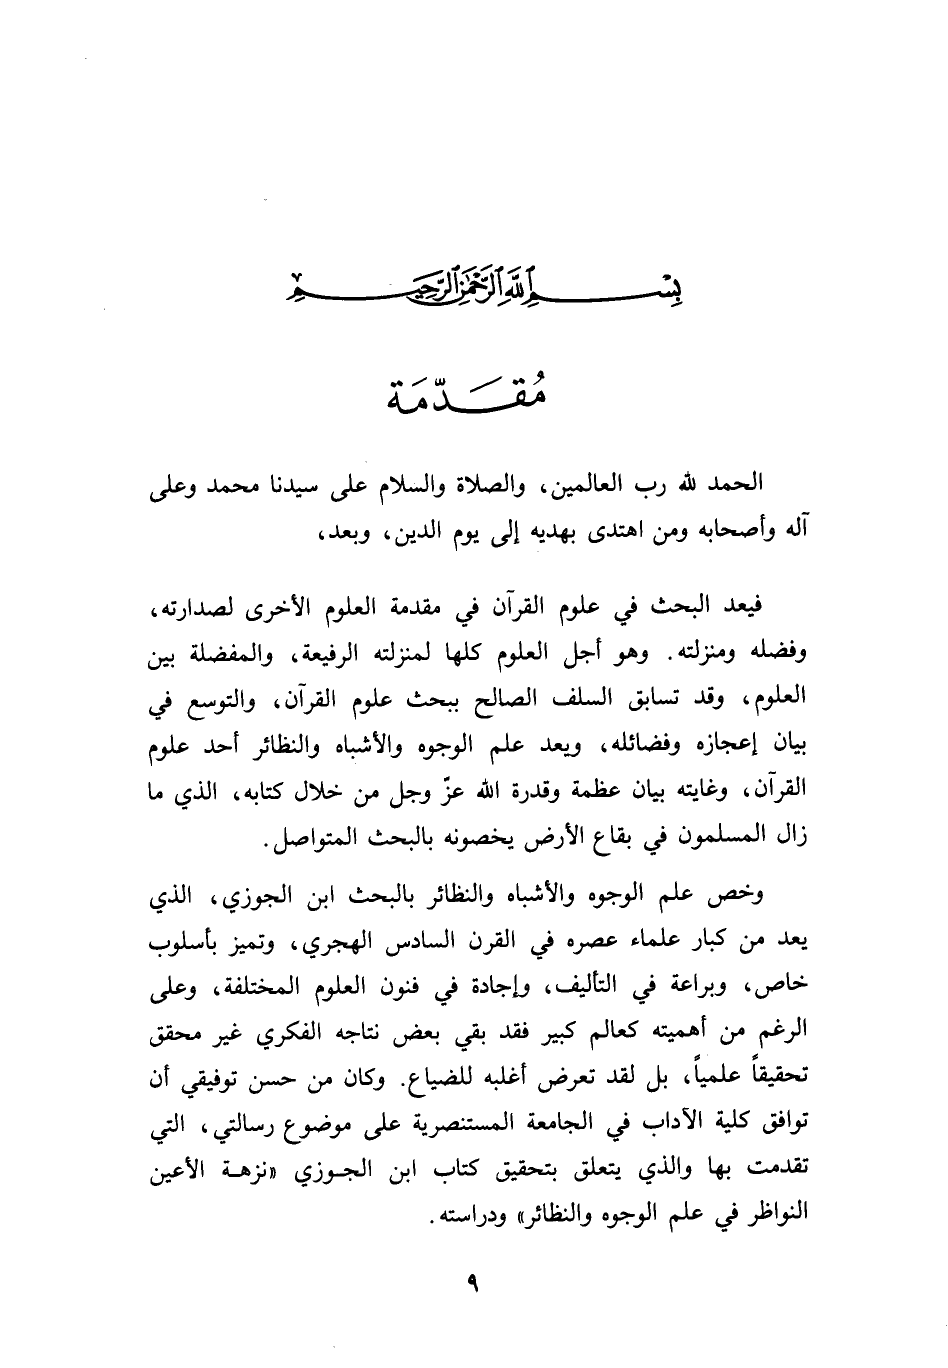 بِسْمِ اللَّهِ الرَّحْمَٰنِ الرَّحِيمِ
مُقَدّمَة
الحمد لله رب العالمين، والصلاة والسلام على سيدنا محمد وعلى
آله وأصحابه ومن اهتدى بهديه إلى يوم الدين، وبعد،
فيعد البحث في علوم القرآن في مقدمة العلوم الأخرى لصدارته،
وفضله ومنزلته. وهو أجل العلوم كلها لمنزلته الرفيعة، والمفضلة بين
العلوم، وقد تسابق السلف الصالح ببحث علوم القرآن، والتوسع في
بيان إعجازه وفضائله، ويعد علم الوجوه والأشباه والنظائر أحد علوم
القرآن، وغايته بيان عظمة وقدرة الله عزّ وجل من خلال كتابه، الذي ما
زال المسلمون في بقاع الأرض يخصونه بالبحث المتواصل.
وخص علم الوجوه والأشباه والنظائر بالبحث ابن الجوزي، الذي
يعد من كبار علماء عصره في القرن السادس الهجري، وتميز بأسلوب
خاص، وبراعة في التأليف، وإجادة في فنون العلوم المختلفة، وعلى
الرغم من أهميته كعالم كبير فقد بقي بعض نتاجه الفكري غير محقق
تحقيقاً علمياً، بل لقد تعرض أغلبه للضياع. وكان من حسن توفيقي أن
توافق كلية الآداب في الجامعة المستنصرية على موضوع رسالتي، التي
تقدمت بها والذي يتعلق بتحقيق كتاب ابن الجوزي «نزهة الأعين
النواظر في علم الوجوه والنظائر» ودراسته.
٩